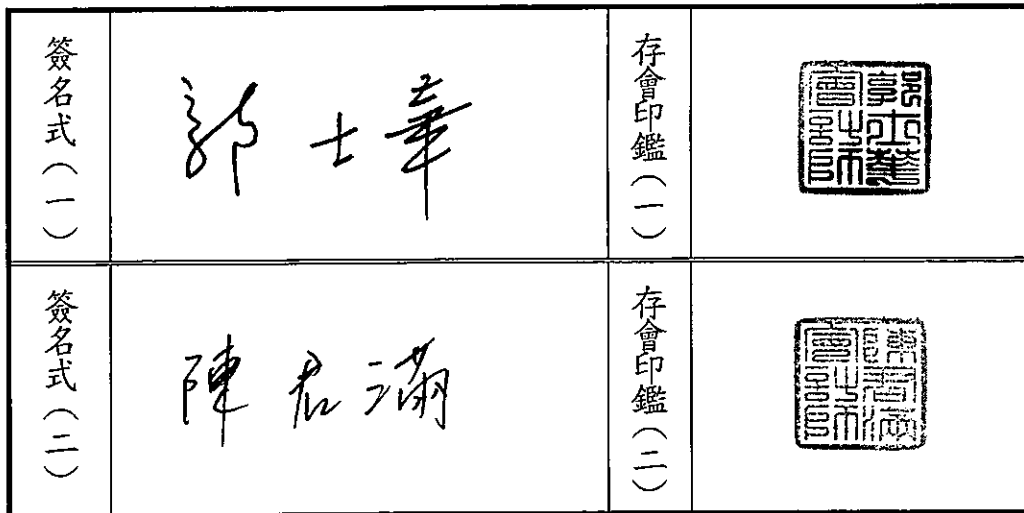 簽名式(一)
郭士華
存會印鑑(一)
郭士華會計師
簽名式(二)
陳君滿
存會印鑑(二)
陳君滿會計師